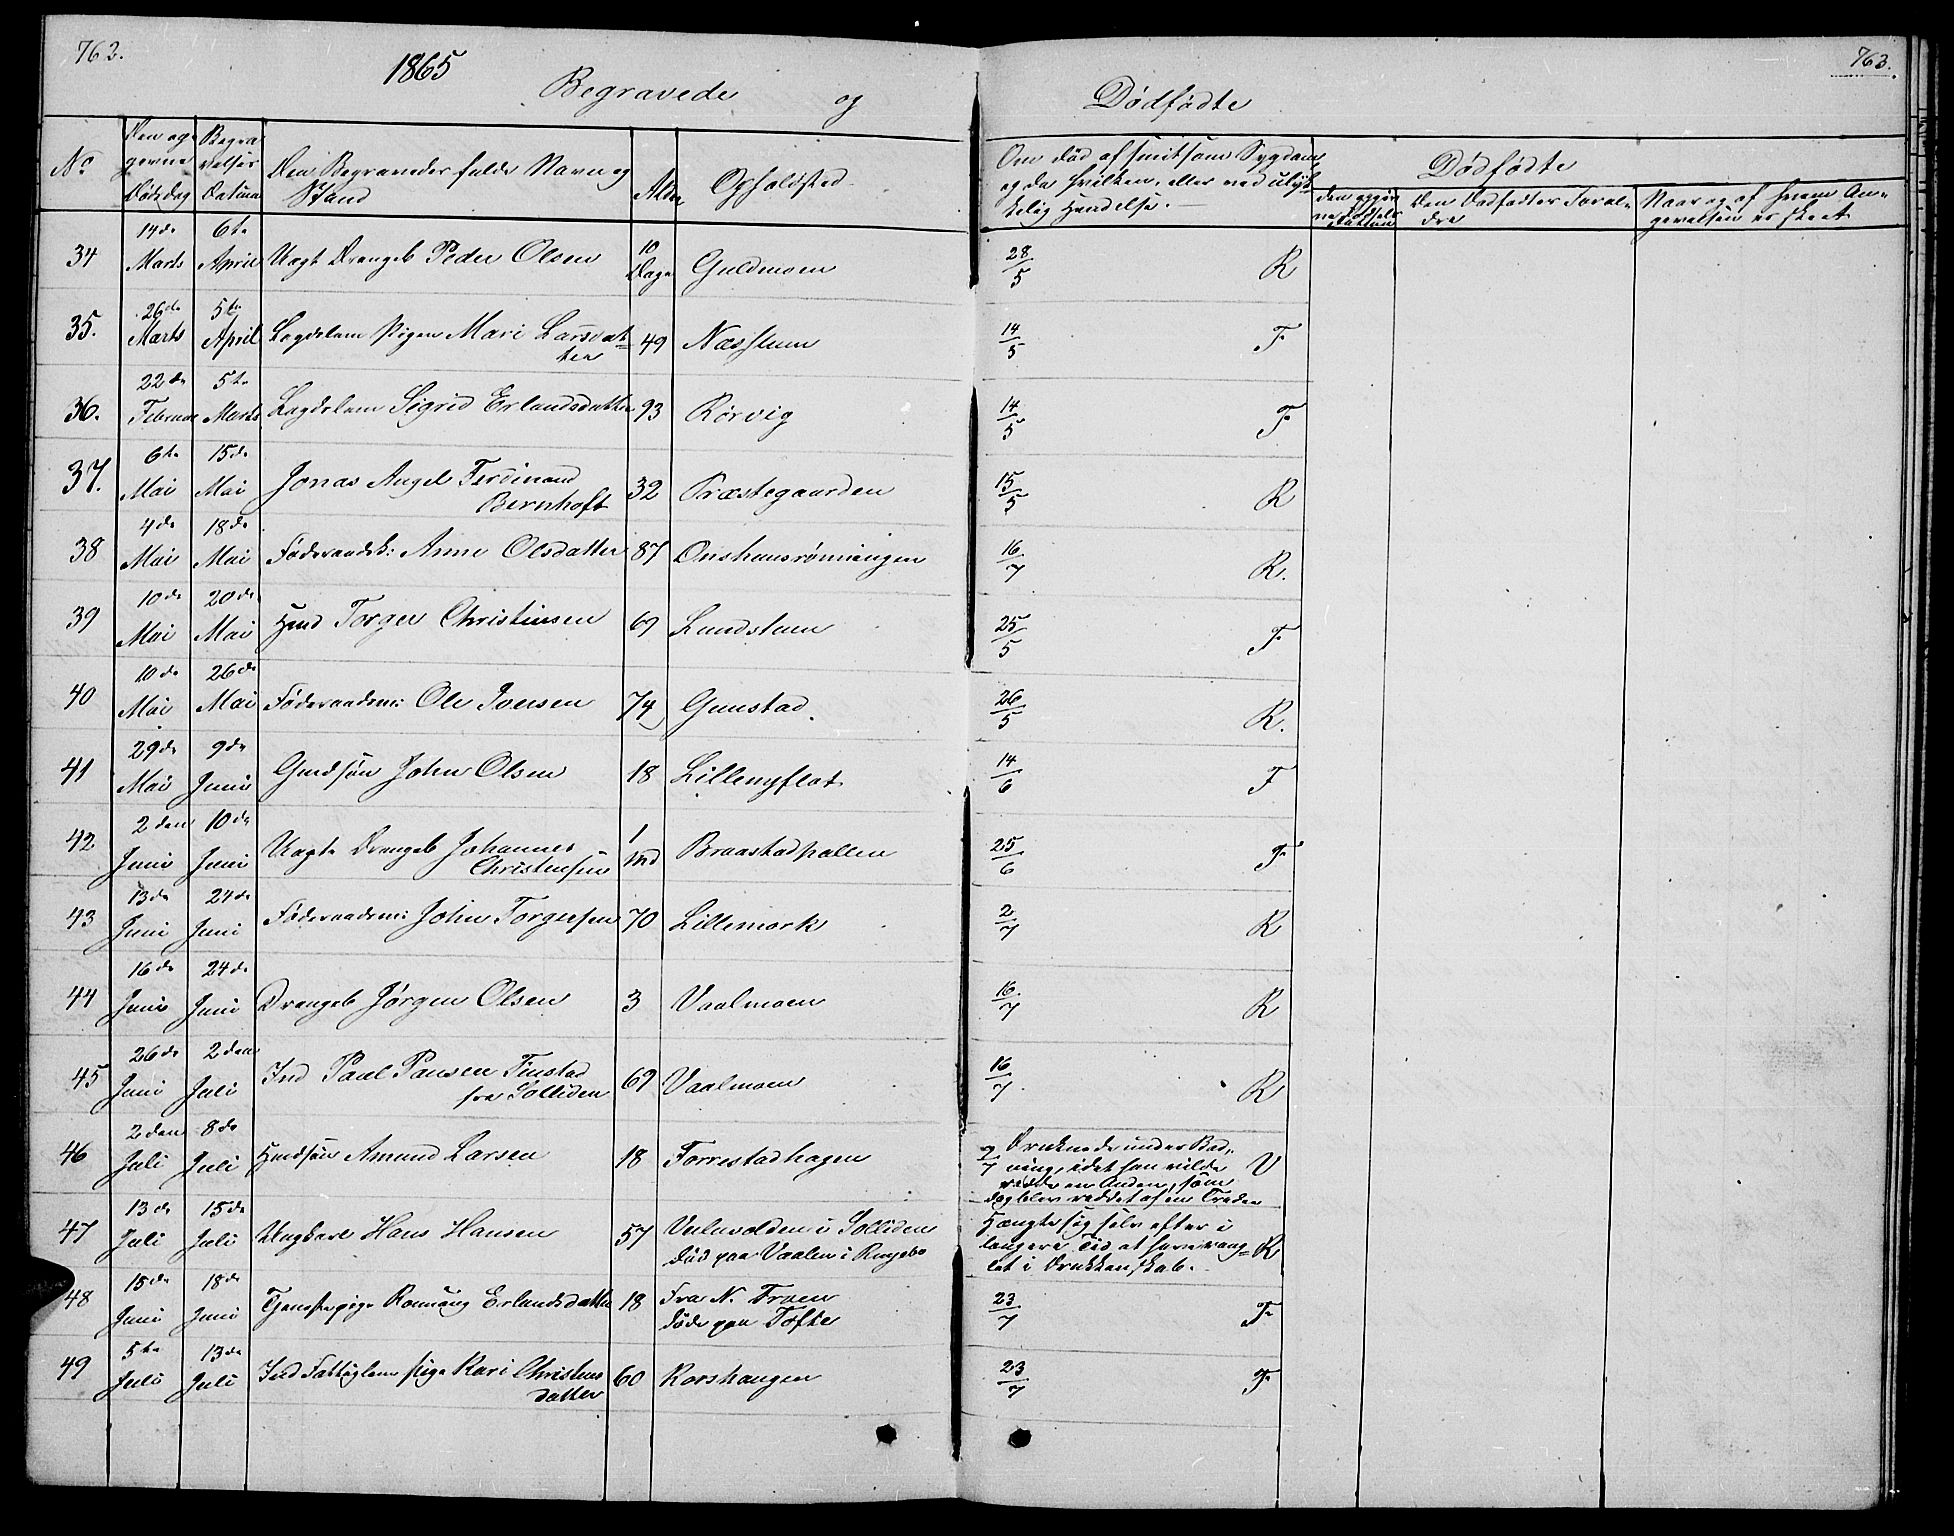 762.
1865
Begravede og Dødfødte
763.
No
Den opgivne Dødsdag
Begravelses Datum
Den Begravedes fulde Navn og Stand
Alder
Opholdssted
Om død af smitsom Sygdom og da hvilken, eller ved ulykkelig Hændelse.
Dødfødte
Den opgivne Fødsels Datum
Den Dødfødtes Forældre
Naar og af hvem Angivelsen er skeet
34 14de Marts 6te April Uægt Drengeb Peder Olsen 10 Dage Guldmoen 28/5 R
35. 26de Marts 5te April Lægdslem Pigen Mari Larsdatter 49 Næsstuen 14/5 F
36. 22de Februar 5te Marts Lægdslem Sigrid Erlandsdatter 93 Rørvig 14/5 F
37. 6te Mai 15de Mai Jonas Angel Ferdinand Bernhoft 32 Præstegaarden 15/5 R
38 4de Mai 18de Mai Føderaadsk: Anne Olsdatter 87 Onshuusrønningen 16/7 R.
39 10de Mai 20de Mai Hmd Torger Christensen 69 Lundstuen 25/5 F
40 10de Mai 26de Mai Føderaadsm: Ole Iversen 74 Gunstad 26/5 R.
41 29de Mai 9de Juni Gmdsøn John Olsen 18 Lillenyflot 14/6 F
42 2den Juni 10de Juni Uægte Drengeb Johannes Christensen 1 Md Braastadhallen 25/6 F
43 13de Juni 24de Juni Føderaadsm: John Torgersen 70 Lillemork 2/7 R
44 16de Juni 24de Juni Drengeb Jørgen Olsen 3 Vaalmoen 16/7 R
45 26de Juni 2den Juli Ind Paul Paulsen Finstad fra Solliden 69 Vaalmoen 16/7 R
46 2den Juli 8de Juli Hmdsøn Amund Larsen 18 Forrestadhagen 9/7 Druknede under Badning, idet han vilde redde en Anden, som dog blev reddet af en Tredie V
47 13de Juli 15de Juli Ungkarl Hans Hansen 57 i Solliden død paa Vaalen i Ringebo Hængte sig selv efter i længere Tid at have ranglet i Drukkenskab. R
48 15de Juni 18de Juni Tjenestepige Rønnaug Erlandsdatter 18 Fra N. Troen døde paa Tofte 23/7 F
49 5te Juli 13de Juli Ind Fattiglem Pige Kari Christensdatter 60 Korshaugen 23/7 F